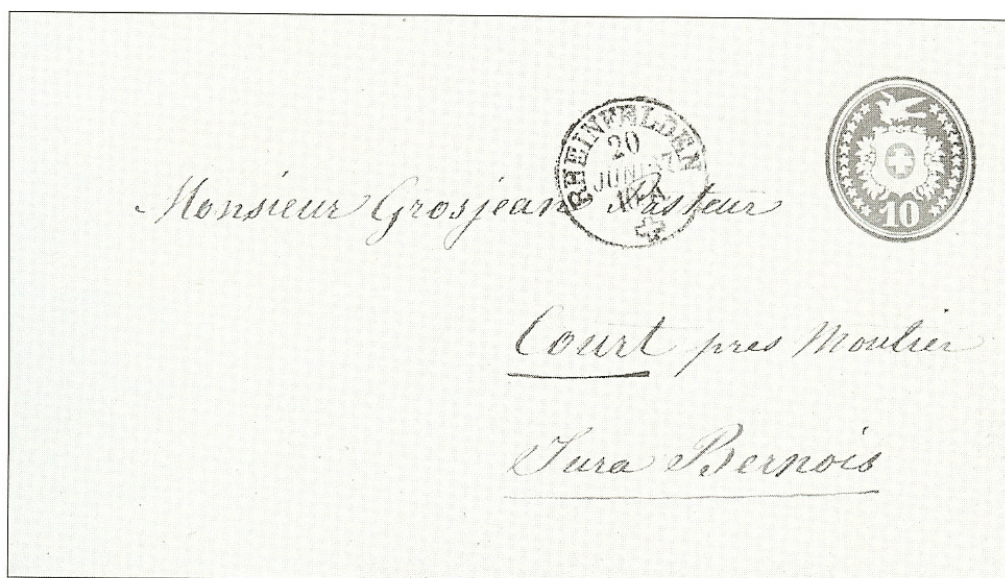 RHEINFELDEN
20
JUNI
10
Monsieur Grosjean Pasteur
Court pres Moutier
Jura Bernois